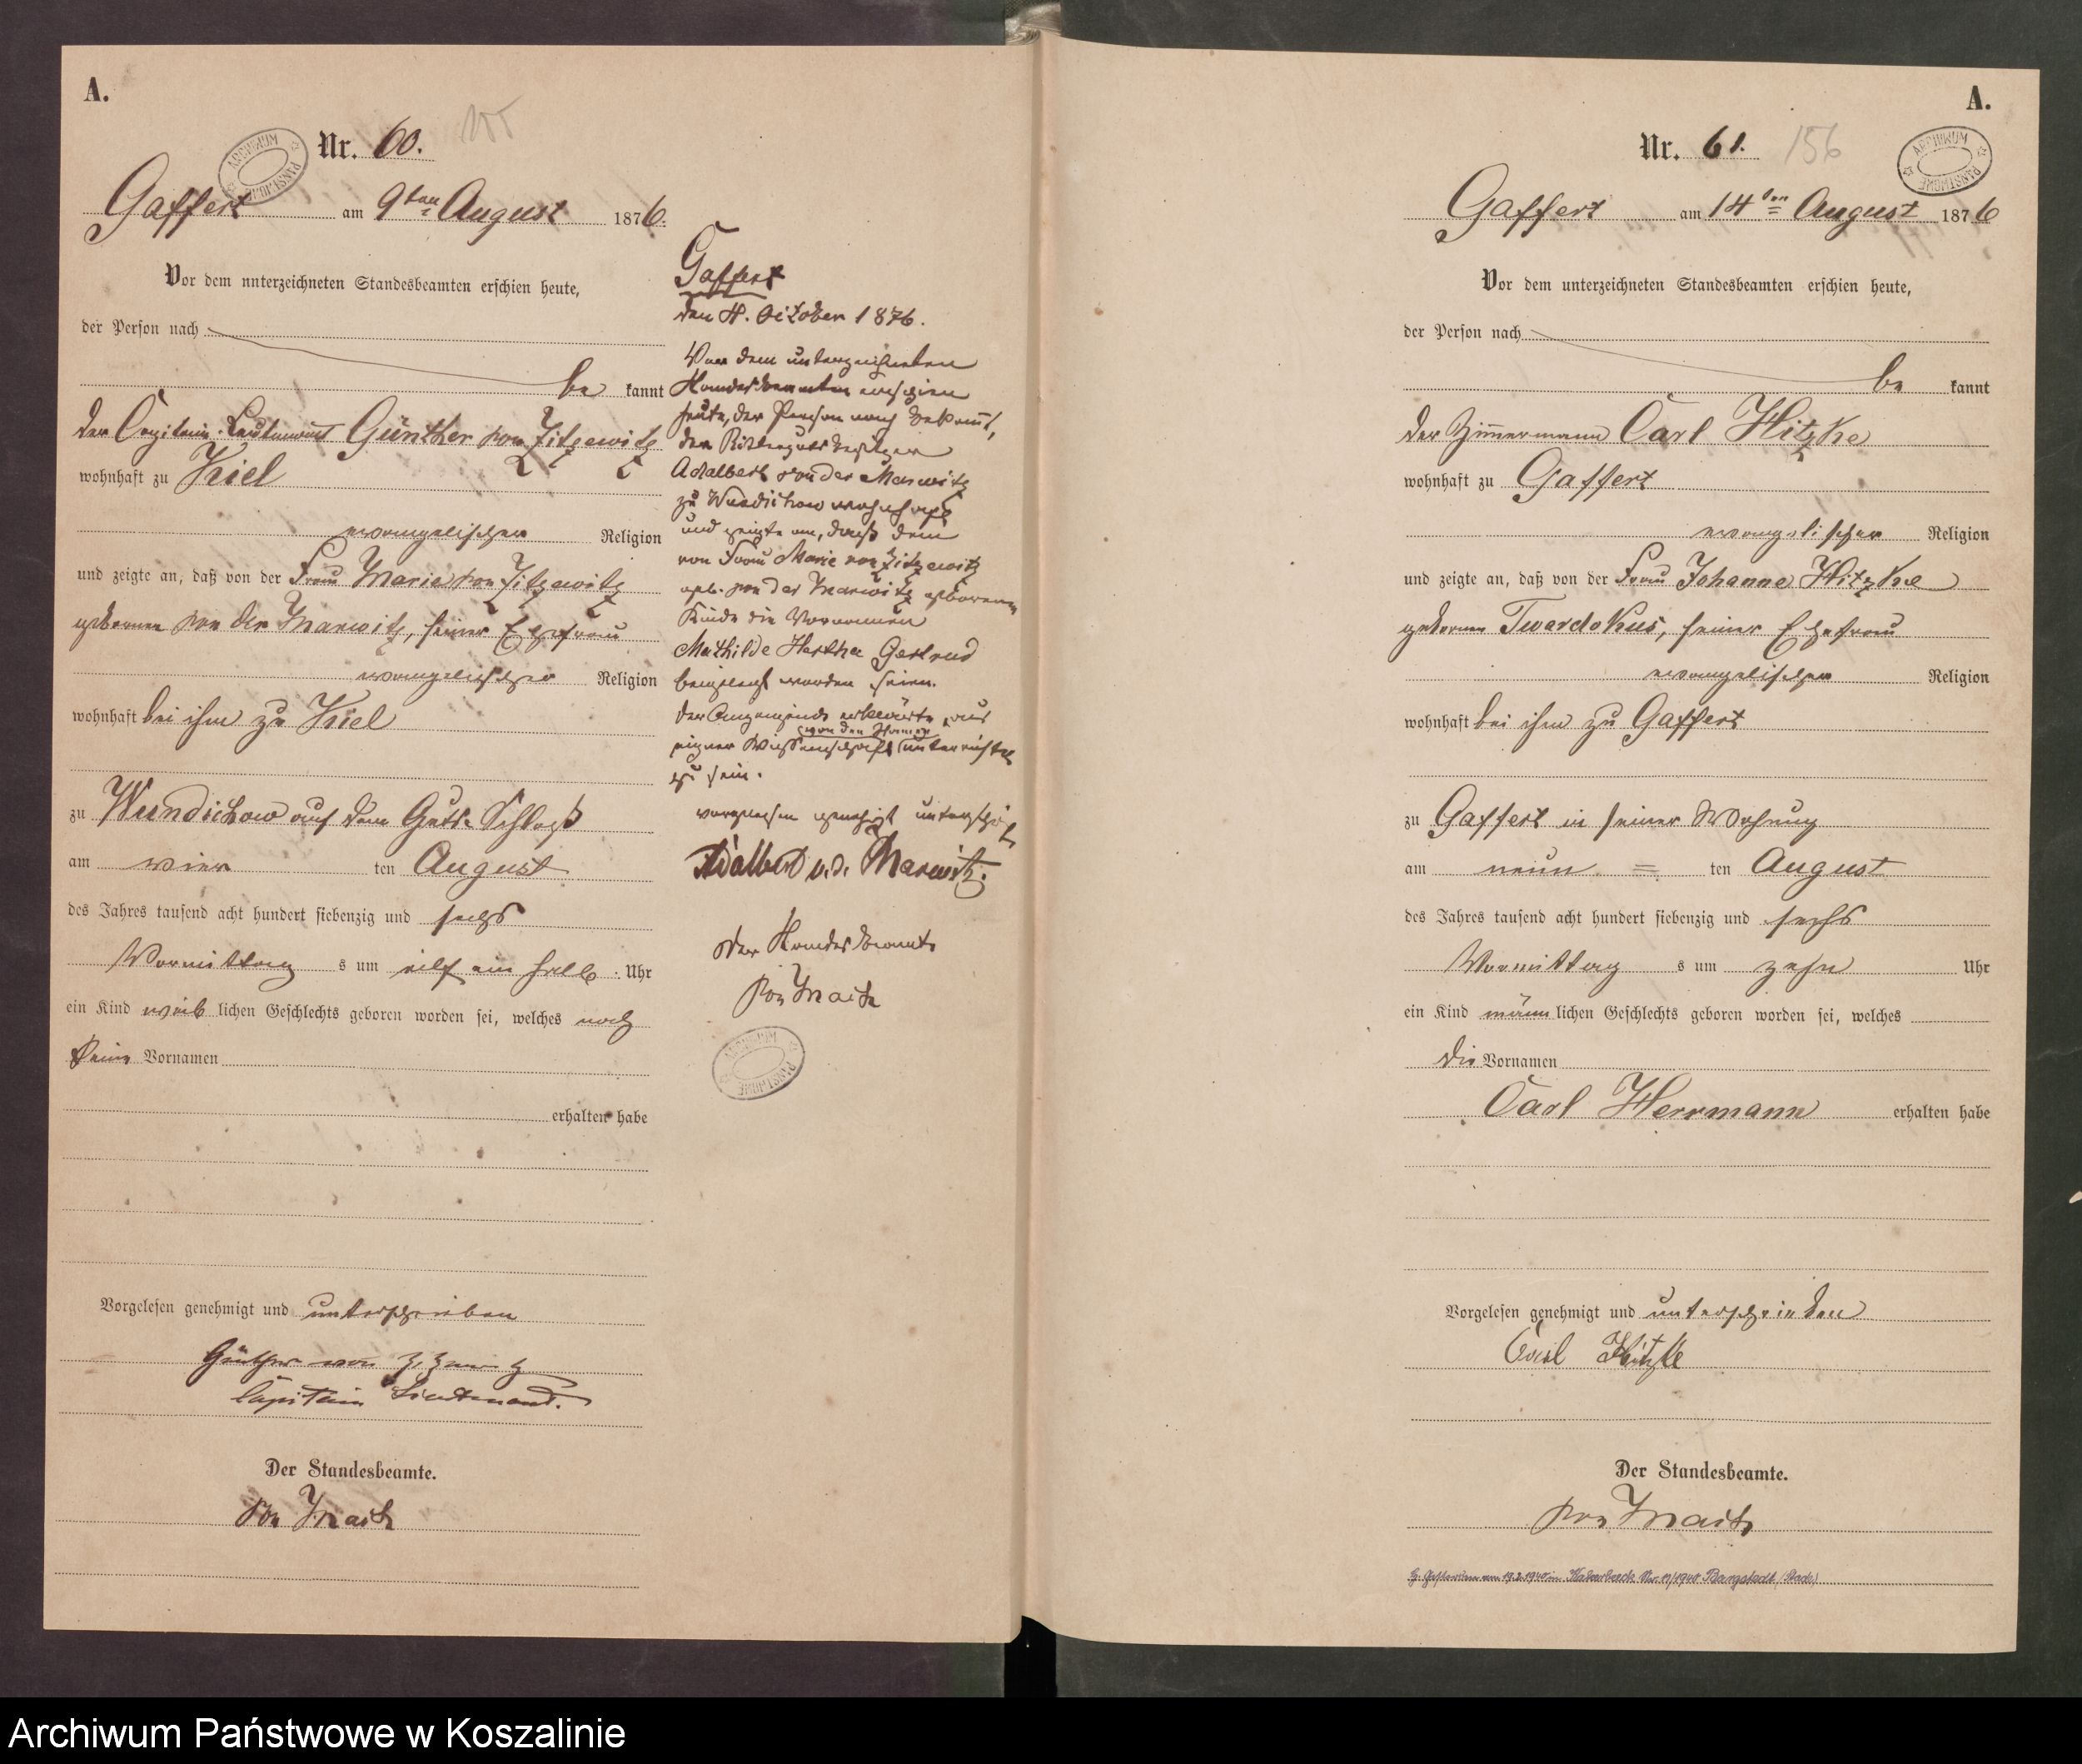 A.
Nr. 60.
155
ARCHIWUM PAŃSTWOWE
Gaffert am 9ten August 1876.
Vor dem unterzeichneten Standesbeamten erschien heute,
der Person nach
be kannt
der Capitain-Leutenant Günther von Zitzewitz
wohnhaft zu Kiel
evangelischer Religion
und zeigte an, daß von der Frau Marie von Zitzewitz
gebornen von der Marwitz, seiner Ehefrau
evangelischer Religion
wohnhaft bei ihm zu Kiel
zu Wundichow auf dem Guts-Schloß
am vier ten August
des Jahres tausend acht hundert siebenzig und sechs
Vormittag s um eilf ein halb Uhr
ein Kind weib lichen Geschlechts geboren worden sei, welches noch
keine Vornamen
erhalten habe
Vorgelesen genehmigt und unterschrieben
Günther von Zitzewitz
Capitain Lieutenant.
Der Standesbeamte.
Gaffert
den 4. October 1876.
Vor dem unterzeichneten
Standesbeamten erschien
heute, der Person nach bekannt,
der Rittergutsbesitzer
Adalbert von der Marwitz
zu Wundichow wohnhaft
und zeigte an, daß dem
von Frau Marie von Zitzewitz
geb. von der Marwitz geborenen
Kinde die Vornamen
Mathilde Hertha Gertrud
beigelegt worden seien.
Der Anzeigende erklärte, aus
eigner Wissenschaft von den Namen unterrichtet
zu sein.
vorgelesen genehmigt unterschr
Adalbert v. d. Marwitz.
Der Standesbeamte
ARCHIWUM PAŃSTWOWE
A.
Nr. 61.
156
ARCHIWUM PAŃSTWOWE
Gaffert am 14ten August 1876
Vor dem unterzeichneten Standesbeamten erschien heute,
der Person nach
be kannt
der Zimmermann Carl Hitzke
wohnhaft zu Gaffert
evangelischer Religion
und zeigte an, daß von der Frau Johanne Hitzke
gebornen Twardokus, seiner Ehefrau
evangelischer Religion
wohnhaft bei ihm zu Gaffert
zu Gaffert in seiner Wohnung
am neun = ten August
des Jahres tausend acht hundert siebenzig und sechs
Vormittag s um zehn Uhr
ein Kind männ lichen Geschlechts geboren worden sei, welches
die Vornamen
Carl Herrmann erhalten habe
Vorgelesen genehmigt und unterschrieben
Carl Hitzke
Der Standesbeamte.
Archiwum Państwowe w Koszalinie